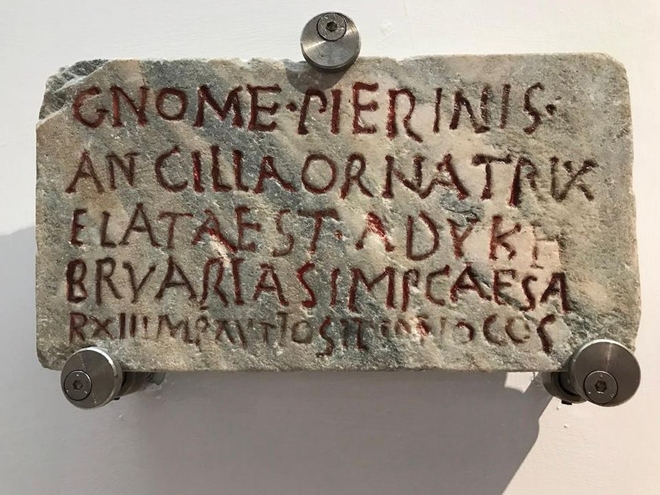 GNOME·PIERINIS·
ANCILLA ORNATRIX
ELATA EST·A D V K FE
BRVARIAS IMP CAESA
R XIII M PAVTIO SILVANO COS